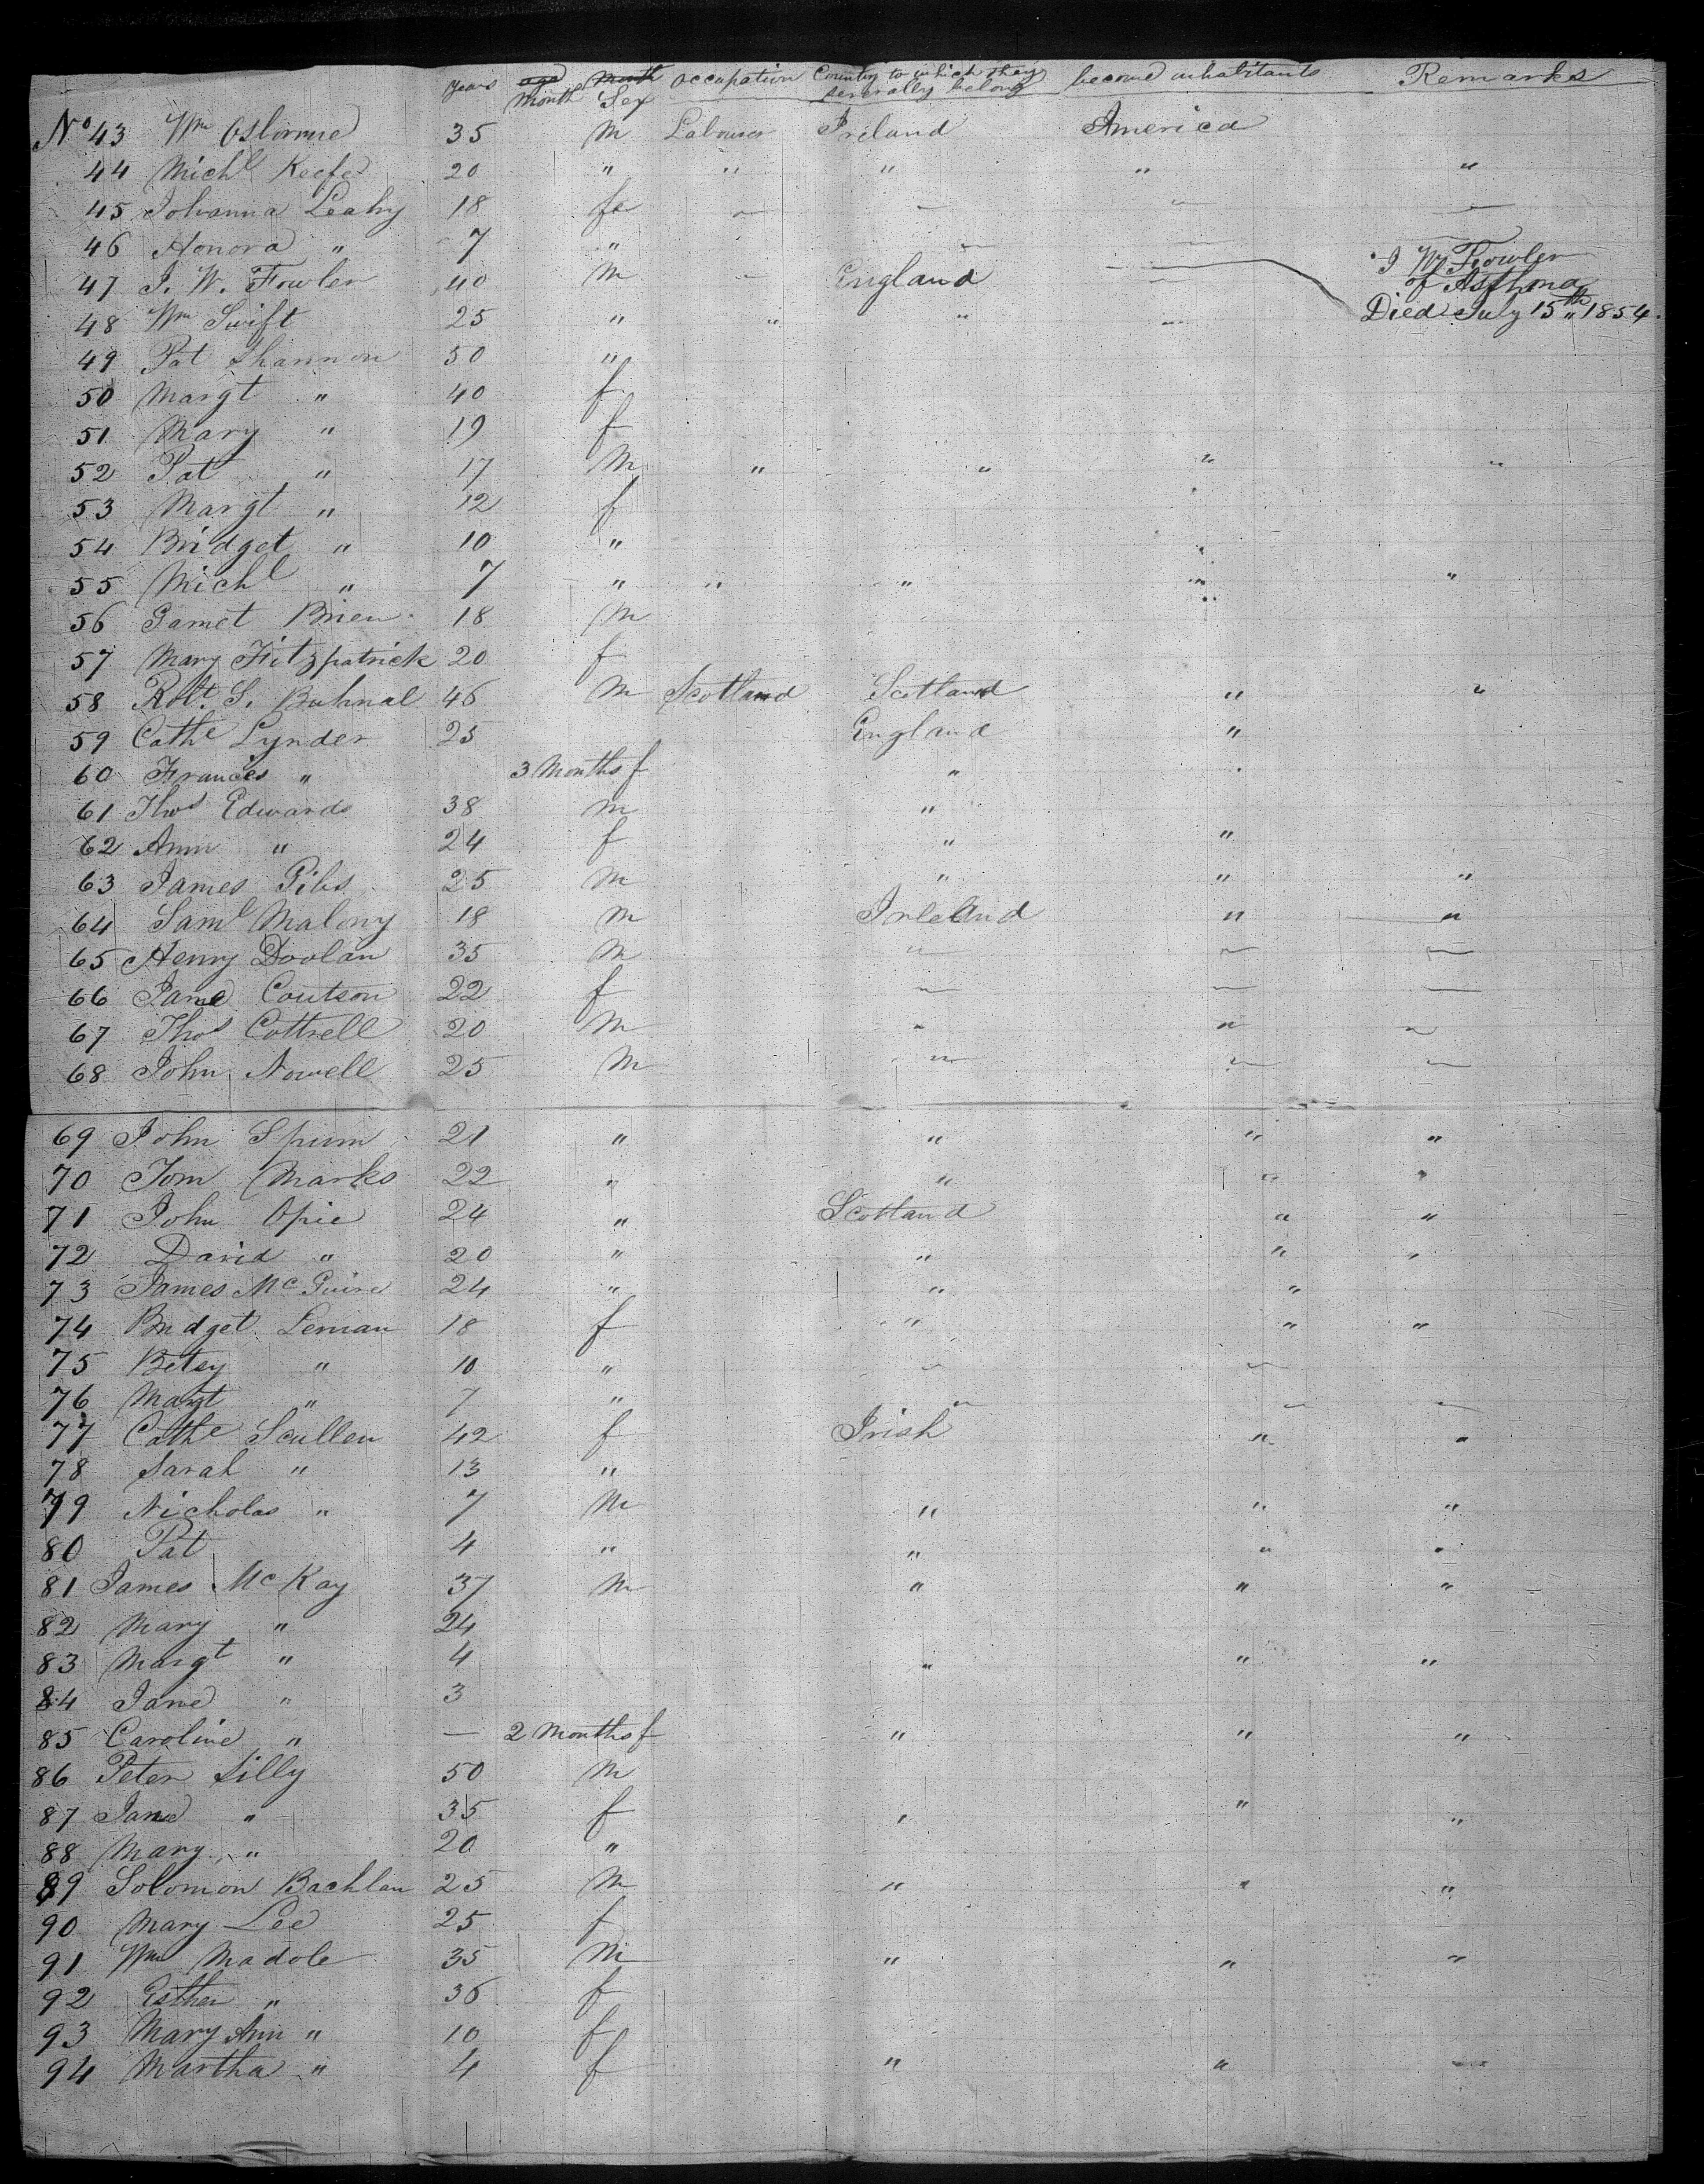 years age Month occupation Country to which they become inhabitants Remarks
Month Sex severally belong
No 43 Wm Osborne 35 M Labourer Ireland America
44 Michl Keefe 20 " " " " "
45 Johanna Leahy 18 fe " " " "
46 Honora " 7 " " " "
47 J. W. Fowler 40 M " England " J W Fowler
of Asthma
48 Wm Swift 25 " " " " Died July 15th 1854.
49 Pat Shannon 50 "
50 Margt " 40 f
51 Mary " 19 f
52 Pat " 17 M " " " "
53 Margt " 12 f
54 Bridget " 10 " "
55 Michl " 7 " " " " "
56 Jamet Brien 18 M "
57 Mary Fitzpatrick 20 f
58 Robt. S. Buhnal 46 M Scotland Scotland " "
59 Cathe Lynder 25 England "
60 Frances " 3 Months f " "
61 Thos Edwards 38 m "
62 Ann " 24 f " "
63 James Gibs 25 m " " "
64 Saml Malony 18 m Ireland " "
65 Henry Doolan 35 m " " "
66 Jane Coutson 22 f " " "
67 Thos Cottrell 20 M " " "
68 John Nowell 25 M " " "
69 John Spurm 21 " " " "
70 Tom Marks 22 " " " "
71 John Opie 24 " Scotland " "
72 David " 20 " " " "
73 James McGuire 24 " " "
74 Bridget Lenian 18 f " " "
75 Betsy " 10 " " "
76 Margt " 7 " " " "
77 Cathe Scullen 42 f Irish " "
78 Sarah " 13 "
79 Nicholas " 7 M " " "
80 Pat 4 " " " "
81 James McKay 37 M " " "
82 Mary " 24
83 Margt " 4 " " "
84 Jane " 3
85 Caroline " — 2 Months f " " "
86 Peter Lilly 50 M
87 Jane " 35 f " " "
88 Mary " 20 "
89 Solomon Bachlan 25 M " " "
90 Mary Lee 25 f
91 Wm Madole 35 M " " "
92 Esther " 36 f
93 Mary Ann " 10 f
94 Martha " 4 f " " "